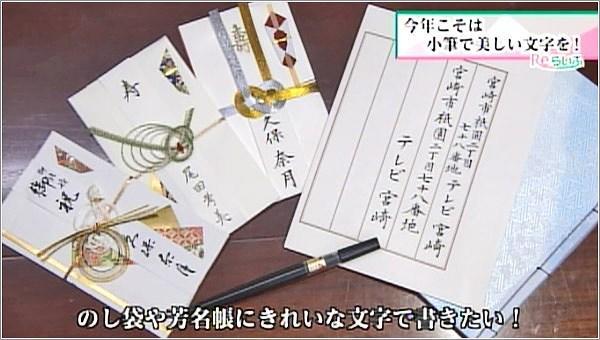 今年こそは
小筆で美しい文字を！
Reらいふ
寿
寿
久保奈月
御祝
宮崎市祇園二丁目
七十八番地
テレビ宮崎
宮崎市祇園二丁目七十八番地
テレビ宮崎
のし袋や芳名帳にきれいな文字で書きたい！